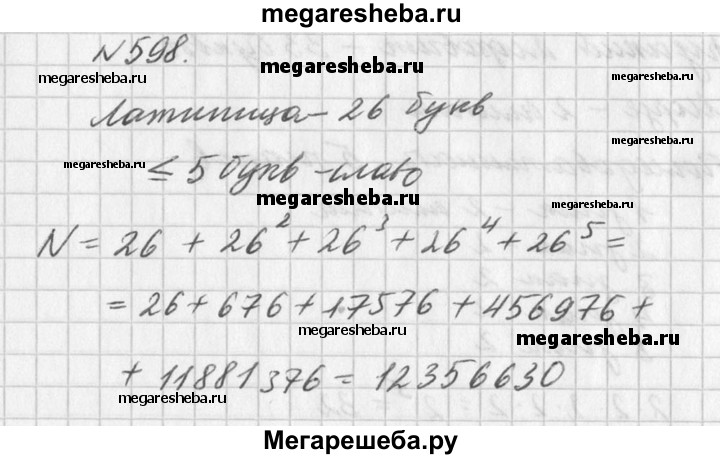 megaresheba.ru
N598.
megaresheba.ru
megaresheba.ru
megaresheba.ru
Латиница – 26 букв
megaresheba.ru
≤ 5 букв – слово
megaresheba.ru
megaresheba.ru
N = 26 + 26² + 26³ + 26⁴ + 26⁵ =
= 26 + 676 + 17576 + 456976 +
megaresheba.ru
megaresheba.ru
+ 11881376 = 12356630
megaresheba.ru
Мегарешеба.ру